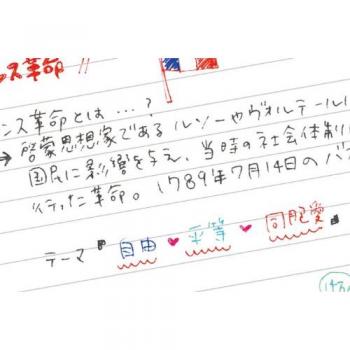 ンス革命!!
ンス革命とは…?
→ 啓蒙思想家であるルソーやヴォルテール
国民に影響を与え、当時の社会体制
行った革命。1789年7月14日のバ
テーマ 自由 ♥ 平等 ♥ 同胞愛